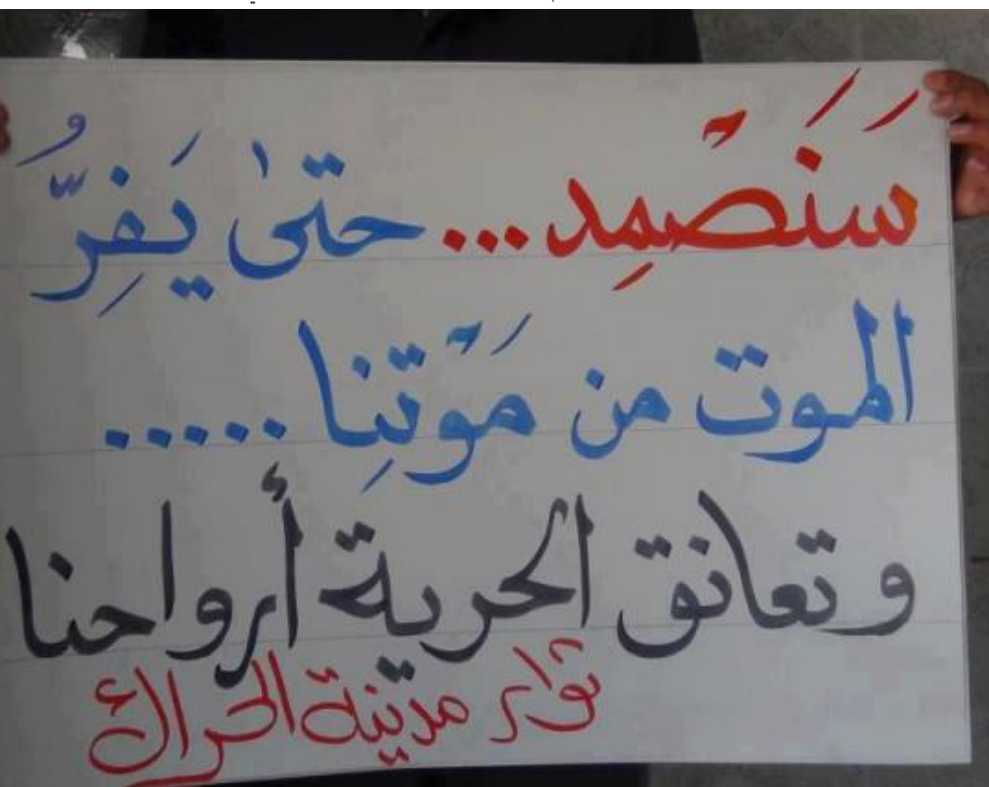 سَنَصْمِد... حتىٰ يَفِرُّ
الموت من مَوْتِنا ......
و تعانق الحرية أرواحنا
ثوار مدينة الحراك